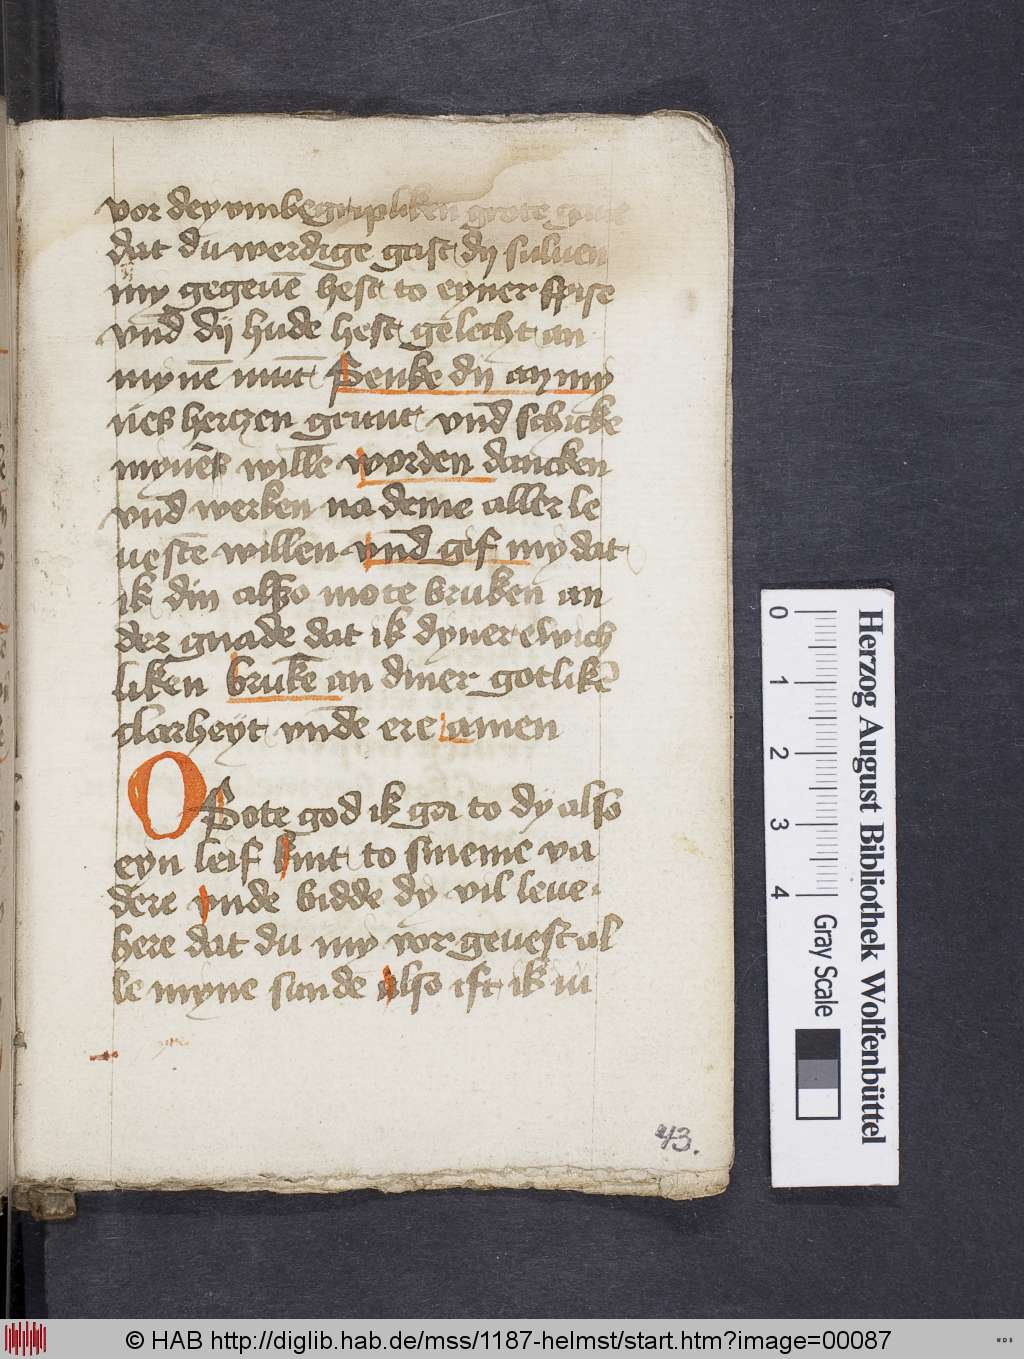 vor dey vmbegripliken grote gaue
dat du werdige gast dij suluen
my gegeuē hest to eyner spise
vnd dij hude hest gelecht an
mynē mūt Senke dij an my
nes hertzen grunt vnd schicke
mynēs willē worden dancken
vnd werken na deme aller le
ueste willen vnd gif my dat
ik din alßo mote bruken an
der gnade dat ik dyner ewich
liken brukē an diner gotlikē
clarheyt vnde ere amen
O Sote god ik ga to dy also
eyn leif kint to sineme va
dere vnde bidde dy vil leue
here dat du my vorgeuest al
le myne sunde also ift ik iu
43.
Herzog August Bibliothek Wolfenbüttel
0 1 2 3 4 Gray Scale
© HAB http://diglib.hab.de/mss/1187-helmst/start.htm?image=00087